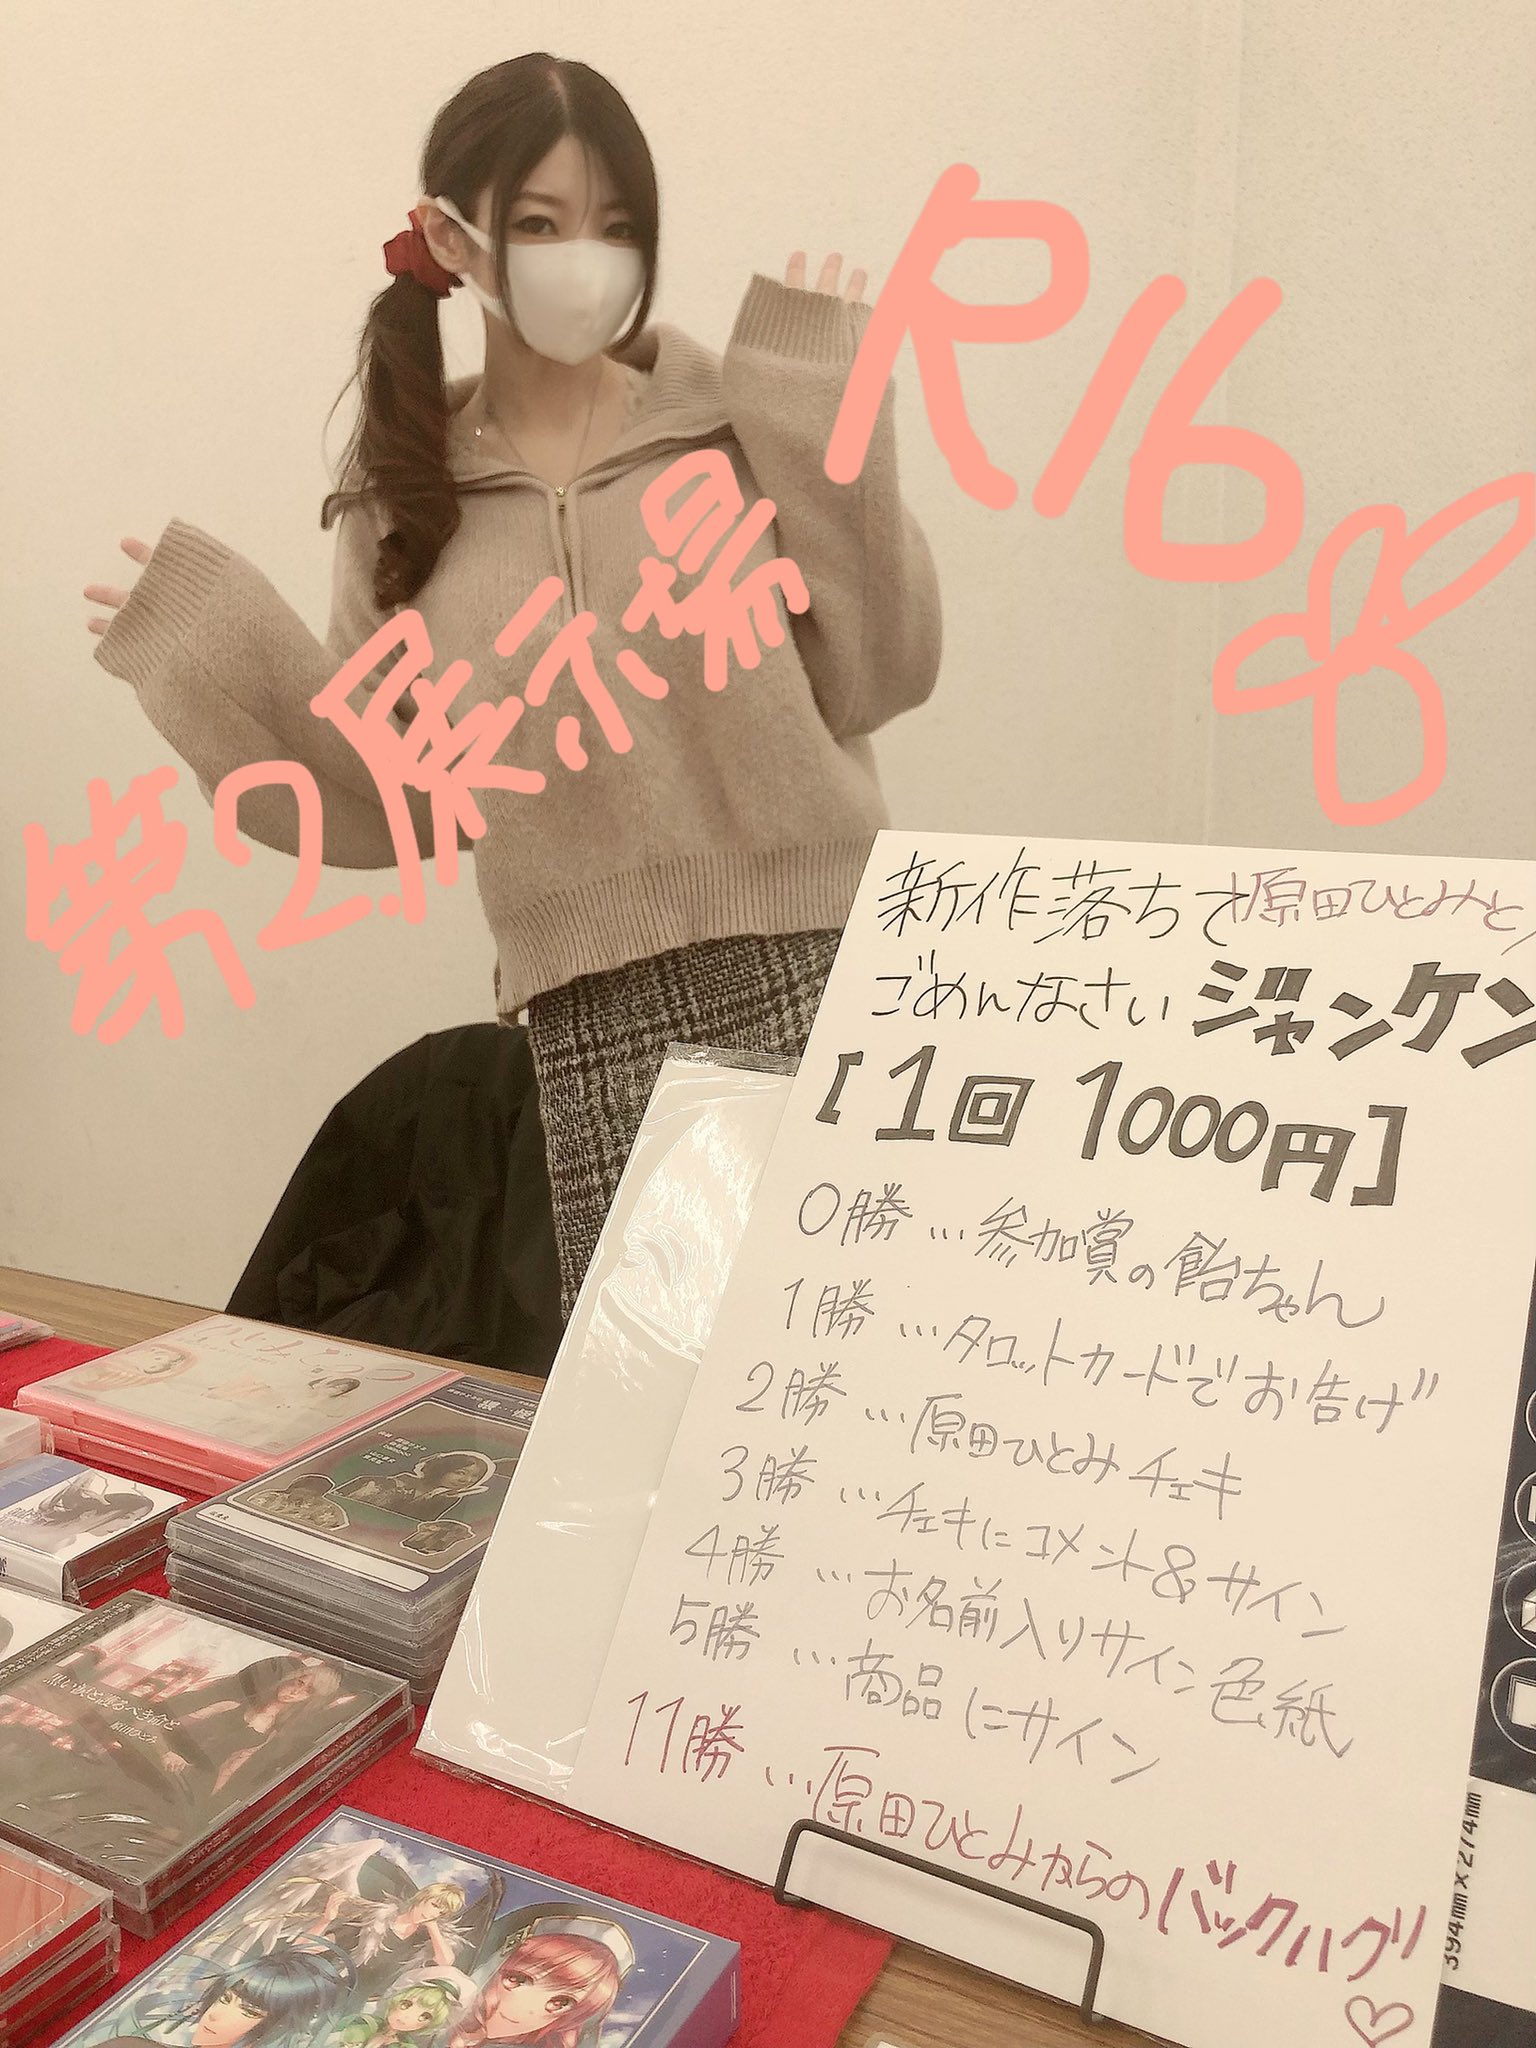 R16
第2展示場
新作落ちて原田ひとみと
ごめんなさいジャンケン
[1回 1000円]
0勝…参加賞の飴ちゃん
1勝…タロットカードでお告げ
2勝…原田ひとみチェキ
3勝…チェキにコメント&サイン
4勝…お名前入りサイン色紙
5勝…商品にサイン
11勝…原田ひとみからのバックハグ
394mm×274mm
黒い涙と護るべき命と
原田ひとみ